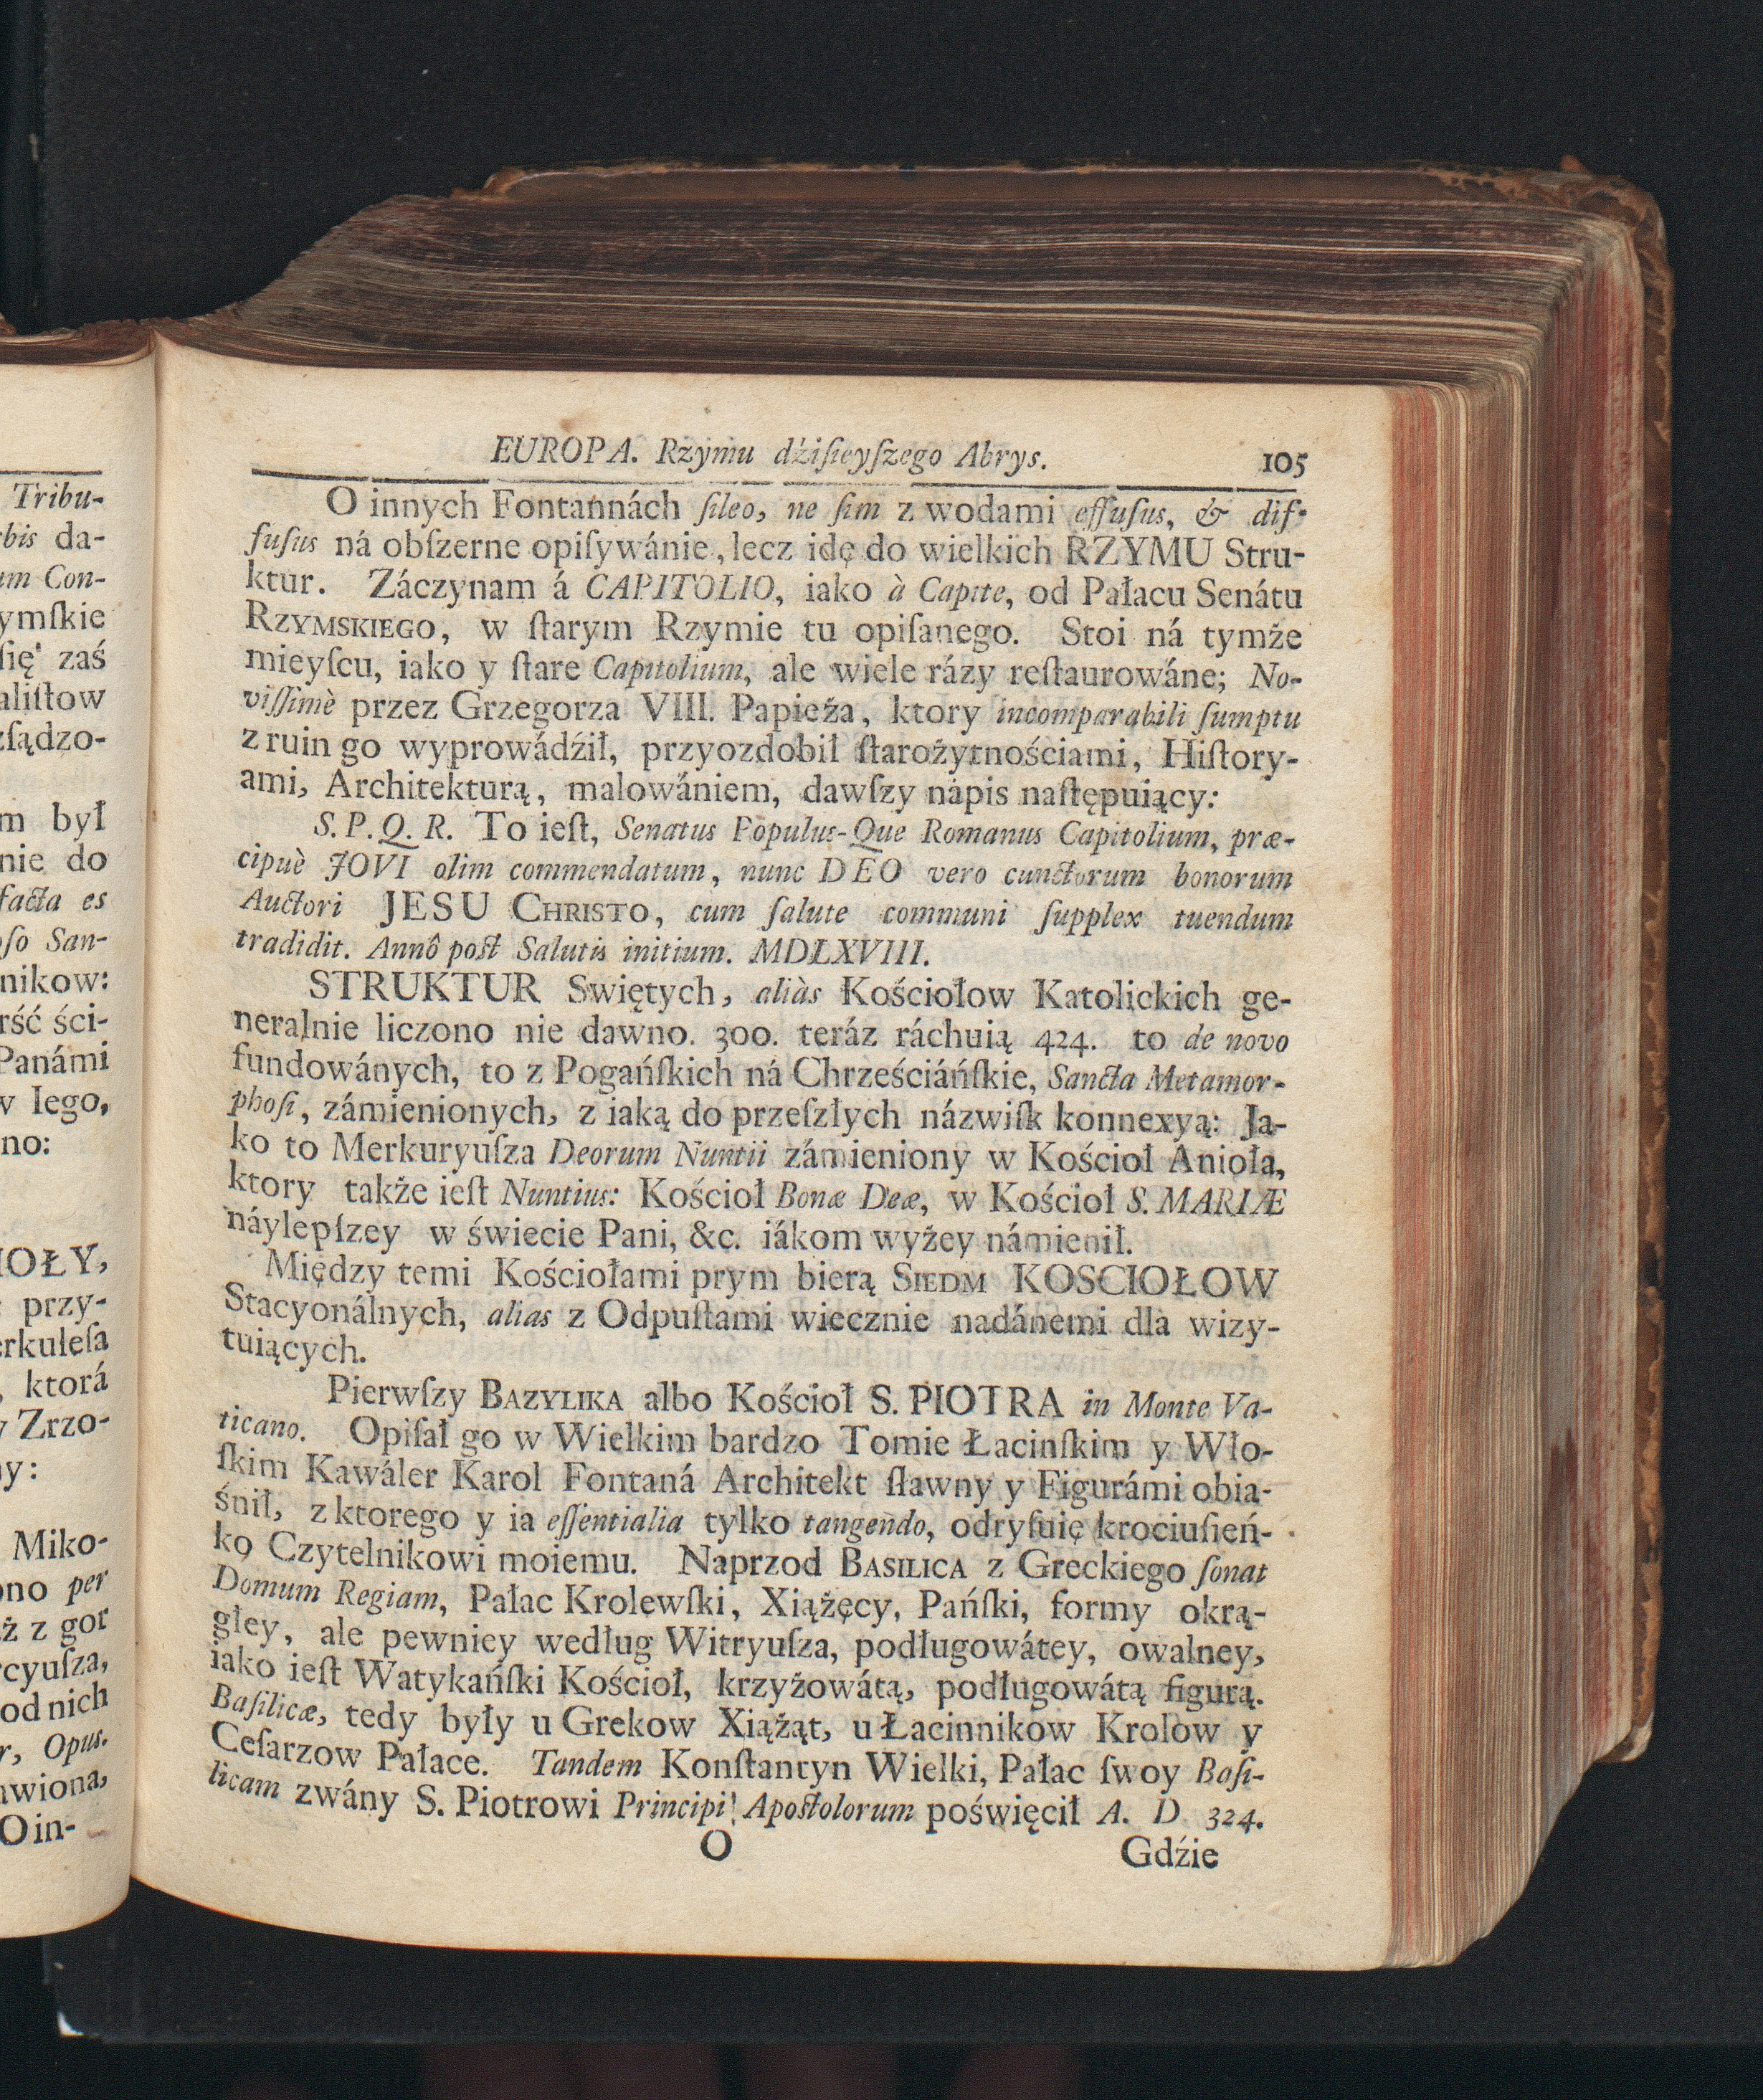 Tribu-
bis da-
um Con-
ymſkie
ſię zaś
aliſtow
zſądzo-
m był
nie do
facta es
oſo San-
nikow:
rść ści-
Panámi
w Iego,
no:
IOŁY,
przy-
erkuleſa
, ktorá
y Zrzo-
y:
Miko-
ono per
ż z gor
cyuſza,
od nich
r, Opus.
wiona,
O in-
EUROPA. Rzymu dźiſieyſzego Abrys. 105
O innych Fontannách ſileo, ne ſim z wodami effuſus, & dif-
fuſus ná obſzerne opiſywánie, lecz idę do wielkich RZYMU Stru-
ktur. Záczynam á CAPITOLIO, iako à Capite, od Pałacu Senátu
RZYMSKIEGO, w ſtarym Rzymie tu opiſanego. Stoi ná tymże
mieyſcu, iako y ſtare Capitolium, ale wiele rázy reſtaurowáne; No-
viſſimè przez Grzegorza VIII. Papieża, ktory incomparabili ſumptu
z ruin go wyprowádźił, przyozdobił ſtarożytnościami, Hiſtory-
ami, Architekturą, malowániem, dawſzy nápis naſtępuiący:
S. P. Q. R. To ieſt, Senatus Populus-Que Romanus Capitolium, præ-
cipuè JOVI olim commendatum, nunc DEO vero cunctorum bonorum
Auctori JESU CHRISTO, cum ſalute communi ſupplex tuendum
tradidit. Annô poſt Salutis initium. MDLXVIII.
STRUKTUR Swiętych, aliàs Kościołow Katolickich ge-
neralnie liczono nie dawno. 300. teráz ráchuią 424. to de novo
fundowánych, to z Pogáńſkich ná Chrześciáńſkie, Sancta Metamor-
phoſi, zámienionych, z iaką do przeſzłych názwiſk konnexyą: Ja-
ko to Merkuryuſza Deorum Nuntii zámieniony w Kościoł Anioła,
ktory także ieſt Nuntius: Kościoł Bonæ Deæ, w Kościoł S. MARIÆ
náylepſzey w świecie Pani, &c. iákom wyżey námienił.
Między temi Kościołami prym bierą SIEDM KOSCIOŁOW
Stacyonálnych, alias z Odpuſtami wiecznie nadánemi dla wizy-
tuiących.
Pierwſzy BAZYLIKA albo Kościoł S. PIOTRA in Monte Va-
ticano. Opiſał go w Wielkim bardzo Tomie Łacinſkim y Wło-
ſkim Kawáler Karol Fontaná Architekt ſławny y Figurámi obia-
śnił, z ktorego y ia eſſentialia tylko tangendo, odryſuię krociuſień-
ko Czytelnikowi moiemu. Naprzod BASILICA z Greckiego ſonat
Domum Regiam, Pałac Krolewſki, Xiążęcy, Pańſki, formy okrą-
głey, ale pewniey według Witryuſza, podługowátey, owalney,
iako ieſt Watykańſki Kościoł, krzyżowátą, podługowátą figurą.
Baſilicæ, tedy były u Grekow Xiążąt, u Łacinnikow Krolow y
Ceſarzow Pałace. Tandem Konſtantyn Wielki, Pałac ſwoy Baſi-
licam zwány S. Piotrowi Principi Apoſtolorum poświęcił A. D. 324.
O Gdźie